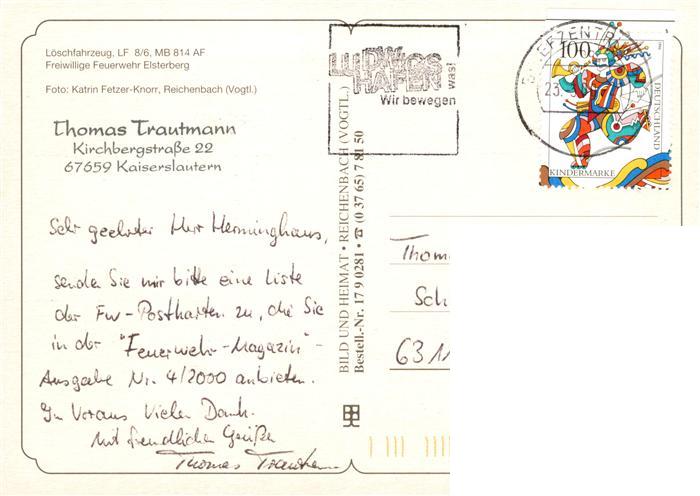 Löschfahrzeug, LF 8/6, MB 814 AF
Freiwillige Feuerwehr Elsterberg
Foto: Katrin Fetzer-Knorr, Reichenbach (Vogtl.)
Thomas Trautmann
Kirchbergstraße 22
67659 Kaiserslautern
Sehr geehrter Herr Herminghaus,
senden Sie mir bitte eine Liste
der Fw-Postkarten zu, die Sie
in der "Feuerwehr-Magazin"-
Ausgabe Nr. 4/2000 anbieten.
Im Voraus Vielen Dank.
Mit freundlichen Grüßen
Thomas Trautmann
BILD UND HEIMAT • REICHENBACH (VOGTL.)
Bestell.-Nr. 17 9 0281 • ☎ (0 37 65) 7 81 50
LUDWIGS
HAFEN
Wir bewegen was!
BRIEFZENTRUM
23
100
DEUTSCHLAND
KINDERMARKE
Thom
Sch
6311